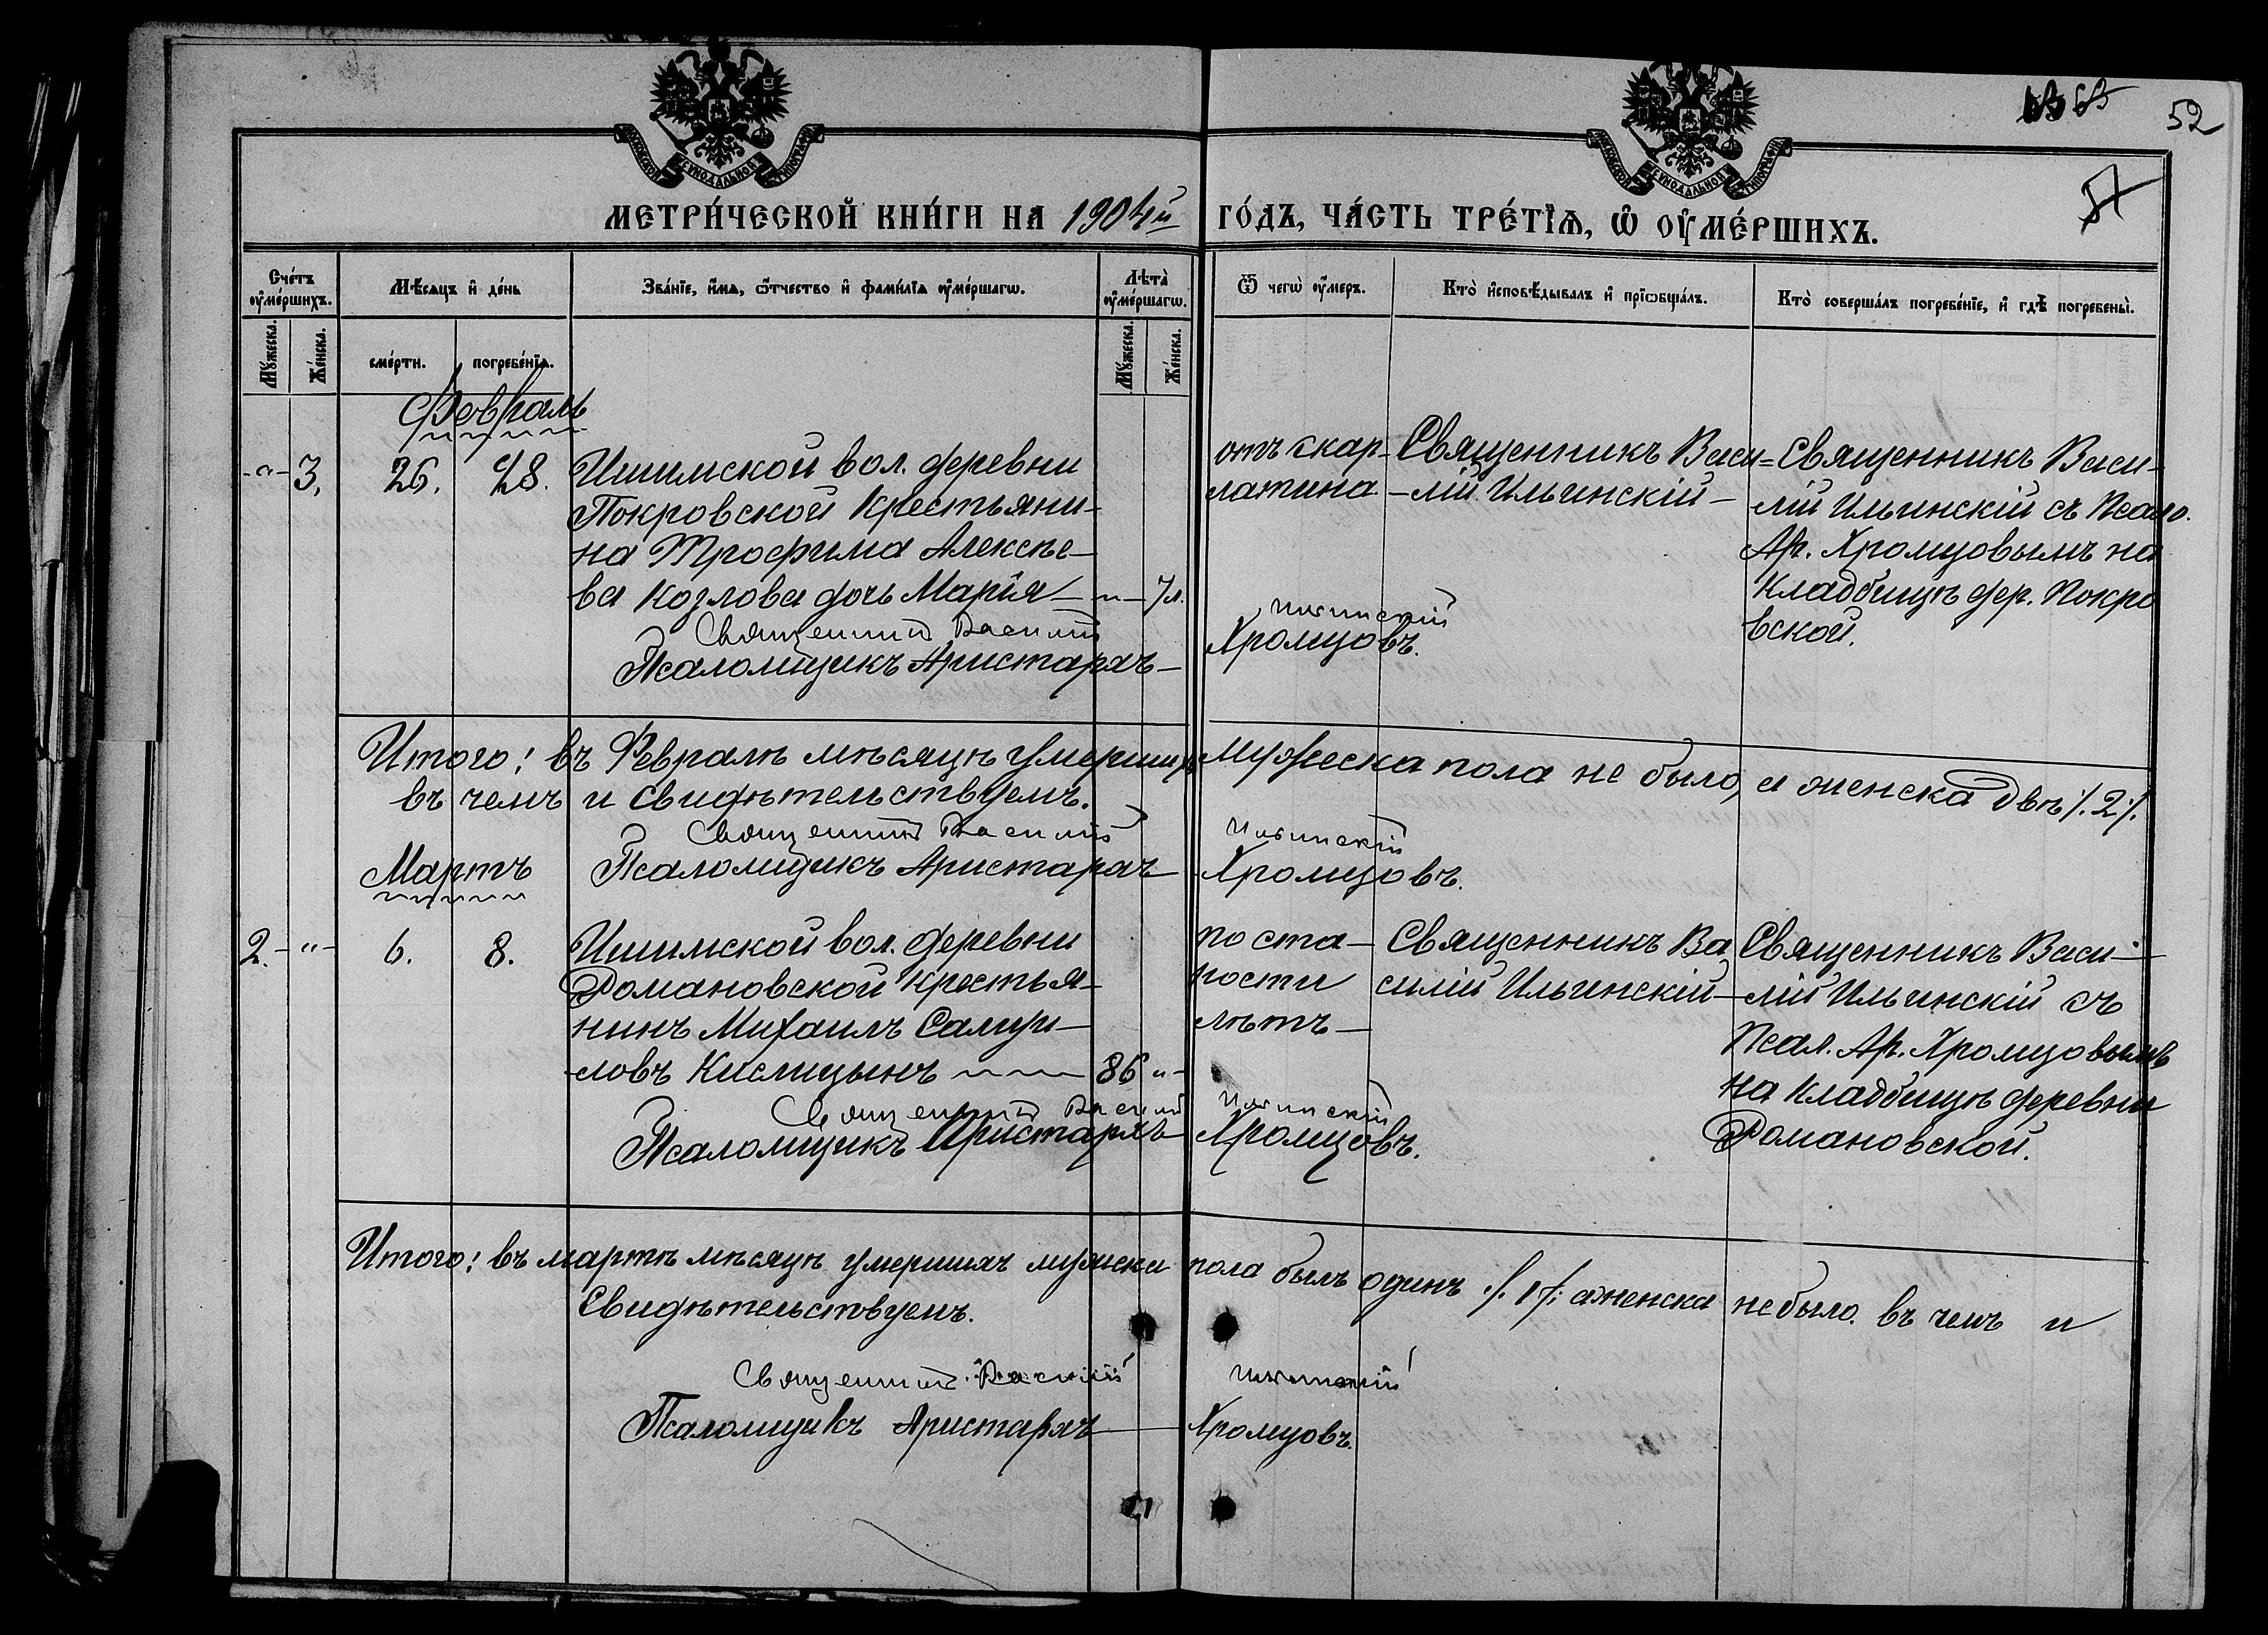 63 65
52
57
МОСКОВСКОЙ СѴНОДАЛЬНОЙ ТИПОГРАФІИ
МОСКОВСКОЙ СѴНОДАЛЬНОЙ ТИПОГРАФІИ
МЕТРИ́ЧЕСКОЙ КНИ́ГИ НА 1904й ГО́ДЪ, ЧА́СТЬ ТРЕ́ТІѦ, Ѽ ОУ҆МЕ́РШИХЪ.
Сче́тъ оу҆ме́ршихъ.
Мꙋ́жеска.
Же́нска.
Мѣ́сѧцъ и҆ де́нь
сме́рти.
погребе́нїѧ.
Зва́нїе, и҆́мѧ, ѻ҆́тчество и҆ фами́лїѧ оу҆ме́ршагѡ.
Лѣта̀ оу҆ме́ршагѡ.
Мꙋ́жеска.
Же́нска.
Ѿ чегѡ̀ оу҆́меръ.
Кто̀ и҆сповѣ́дывалъ и҆ прїѡбща́лъ.
Кто̀ соверша́лъ погребе́нїе, и҆ гдѣ̀ погребены̀.
Февраль
-"- 3. 26. 28.
Ишимской вол. деревни
Покровской крестьяни-
на Трофима Алексѣе-
ва Козлова дочь Марія - " - 7 л.
отъ скар-
латина -
Священникъ Васи=
лій Ильинскій -
Священникъ Васи-
лій Ильинскій съ Псало.
Ар. Хромцовымъ на
кладбищѣ дер. Покро
вской.
Священникъ Василій Ильинскій
Псаломщикъ Аристархъ - Хромцовъ.
Итого: въ Февралѣ мѣсяцѣ умершихъ мужеска пола не было, а женска двѣ /.2/.
въ чемъ и свидѣтельствуемъ.
Священникъ Василій Ильинскій
Псаломщикъ Аристархъ Хромцовъ.
Мартъ
2. - " - 6. 8.
Ишимской вол. деревни
Романовской крестья-
нинъ Михаилъ Самуи-
ловъ Кислицынъ - 86 " -
по ста-
рости
лѣтъ -
Священникъ Ва
силій Ильинскій -
Священникъ Васи-
лій Ильинскій съ
Псал. Ар. Хромцовымъ
на кладбищѣ деревни
Романовской.
Священникъ Василій Ильинскій
Псаломщикъ Аристархъ Хромцовъ.
Итого: въ мартѣ мѣсяцѣ умершихъ мужска пола былъ одинъ /.1/. а женска не было. въ чемъ и
свидѣтельствуемъ.
Священникъ Василій Ильинскій
Псаломщикъ Аристархъ - Хромцовъ.